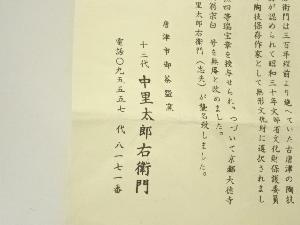 右衛門は三百年程前より絶へていた古唐津の陶技
が認められて昭和三十年文部省文化財保護委員
陶技保存作家として無形文化財に選択されまし
勲四等瑞宝章を授与せられ、つづいて京都大徳寺
翁宗白 号を無庵と改めました。
里太郎右衛門(忠夫)が襲名致しました。
唐津市御茶盌窯
十三代 中里太郎右衛門
電話〇九五五五七 代 八一七一番